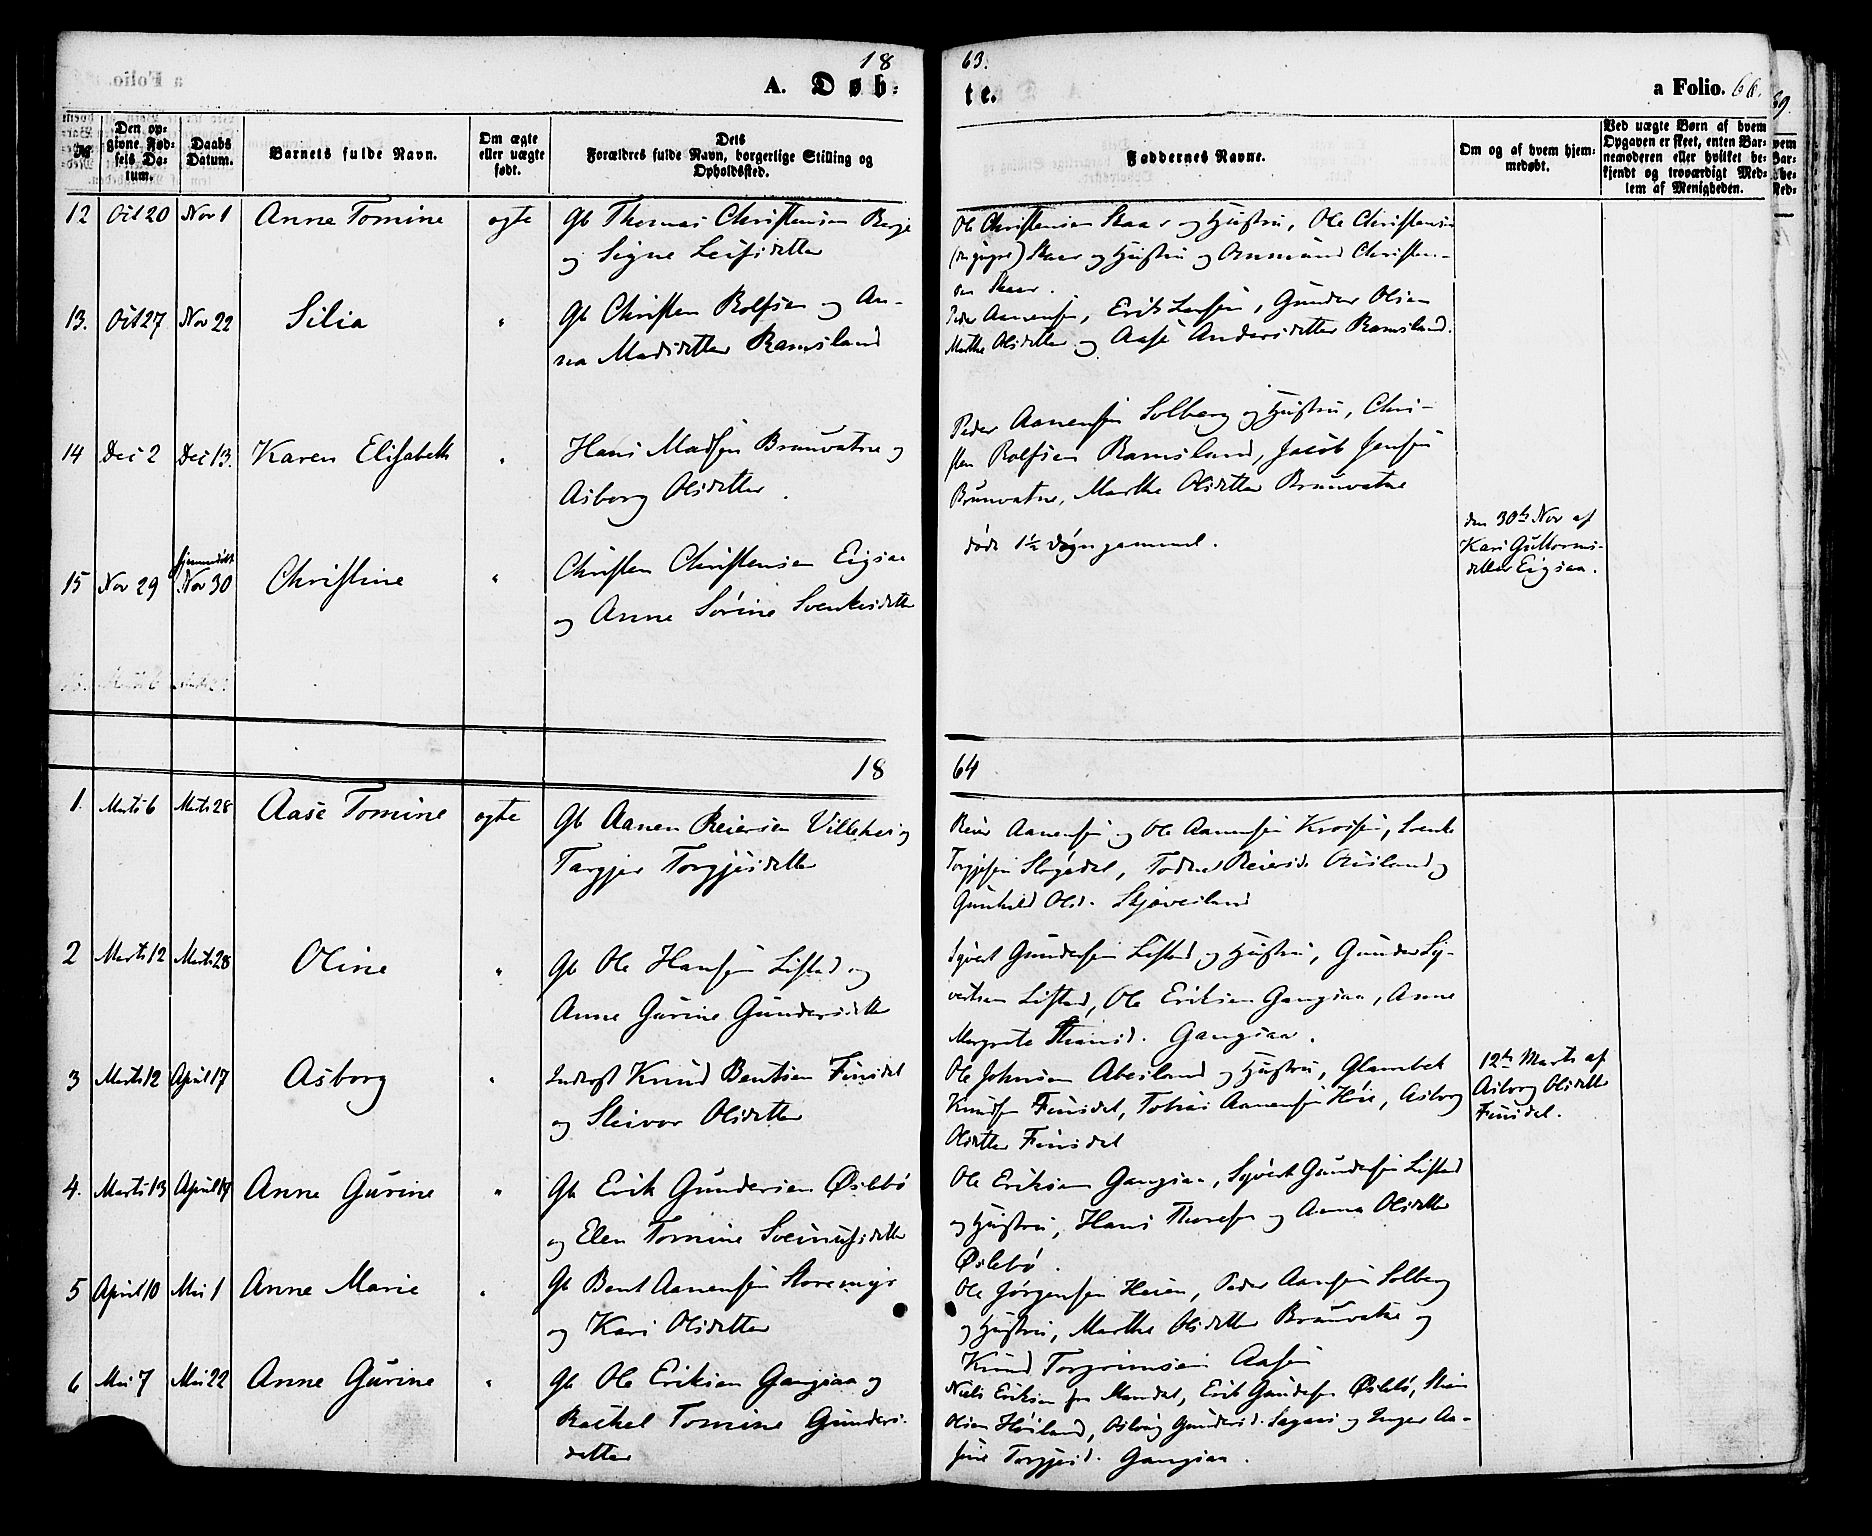 18 63.
A. Døb: te. a Folio. 66.
№ Den opgivne Fødsels Datum. Daabs Datum. Barnets fulde Navn. Om ægte eller uægte født. Dets Forældres fulde Navn, borgerlige Stilling og Opholdssted. Faddernes Navne. Om og af hvem hjemmedøbt. Ved uægte Børn af hvem Opgaven er skeet, enten Barnemoderen eller hvilket bekjendt og troværdigt Medlem af Menigheden.
12 Oct 20 Nov 1 Anne Tomine ægte Gb Thomas Christensen Berge
og Signe Leifsdatter
Ole Christensen Skaar og Hustru, Ole Christensen
(den yngre) Skaar og Hustru og Osmund Christen-
sen Skaar.
13. Oct 27 Nov 22 Silia " Gb Christen Rolfsen og An-
nea Madsdatter Ramsland
Peder Aanensen, Erik Larsen, Gunder Olsen
Marthe Olsdatter og Aase Andersdatter Ramsland.
14 Dec 2 Dec 13. Karen Elisabeth " Hans Madsen Brunvatne og
Asborg Olsdatter.
Peder Aanensen Solberg og Hustru, Chri-
sten Rolfsen Ramsland, Jacob Jensen
Brunvatne, Marthe Olsdatter Brunvatne
15 Nov 29 hjemmedøbt
Nov 30 Christine " Christen Christensen Eigsaa
og Anne Sørine Svenkesdatter
døde 1½ døgn gammel.
den 30te Nov af
Kari Guttorms-
datter Eigsaa.
18 64
1. Marts 6 Marts 28 Aase Tomine ægte Gb Aanen Reiersen Villekei og
Targjer Torgjusdatter
Reier Aanensen og Ole Aanensen , Svenke
Torgjesen Skøgedal, Reiersd. og
Gunhild Olsd. Skjøveland
2 Marts 12 Marts 28 Oline " Gb Ole Hansen Lifstad og
Anne Gurine Gundersdatter
Syvert Gundersen Lifstad og Hustru, Gunder Sy-
vertsen Lifstad, Ole Eriksen Gangsaa, Anne
Margrete Gangsaa.
3 Marts 12 April 17 Asborg " Inderst Knud Bentsen Finsdal
og Sleivor Olsdatter
Ole Johnsen Abesland og Hustru, Glambek
Knudsen Finsdal, Tobias Aanensen Høie, Asborg
Olsdatter Finsdal
12te Marts af
Asborg Olsdatter
Finsdal.
4. Marts 13 April 17 Anne Gurine " Gb Erik Gundersen Øslebø
og Elen Tomine Sveinungsdatter
Ole Eriksen Gangsaa, Syvert Gundersen Lifstad
og Hustru, Hans Thoresen og Anna Olsdatter
Øslebø.
5 April 10 Mai 1 Anne Marie " Gb Bent Aanensen Storemyr
og Kari Olsdatter
Ole Jørgensen Heien, Peder Aanensen Solberg
og Hustru, Marthe Olsdatter Brunvatne og
Knud Torgrimsen Aasen
6 Mai 7 Mai 22 Anne Gurine " Gb Ole Eriksen Gangsaa og
Rachel Tomine Gunders-
datter
Niels Eriksen fra Mandal, Erik Gundersen Øslebø, Stian
Olsen Høiland, Asborg Gundersd. og Inger Aa-
sine Torgjusd. Gangsaa.